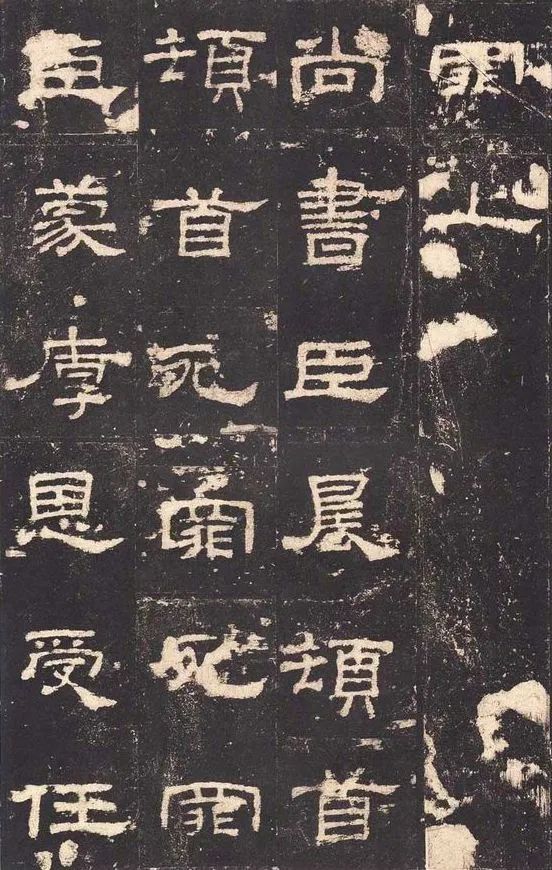 罪
尚書臣晨頓首
頓首死罪死罪
臣蒙厚恩受任